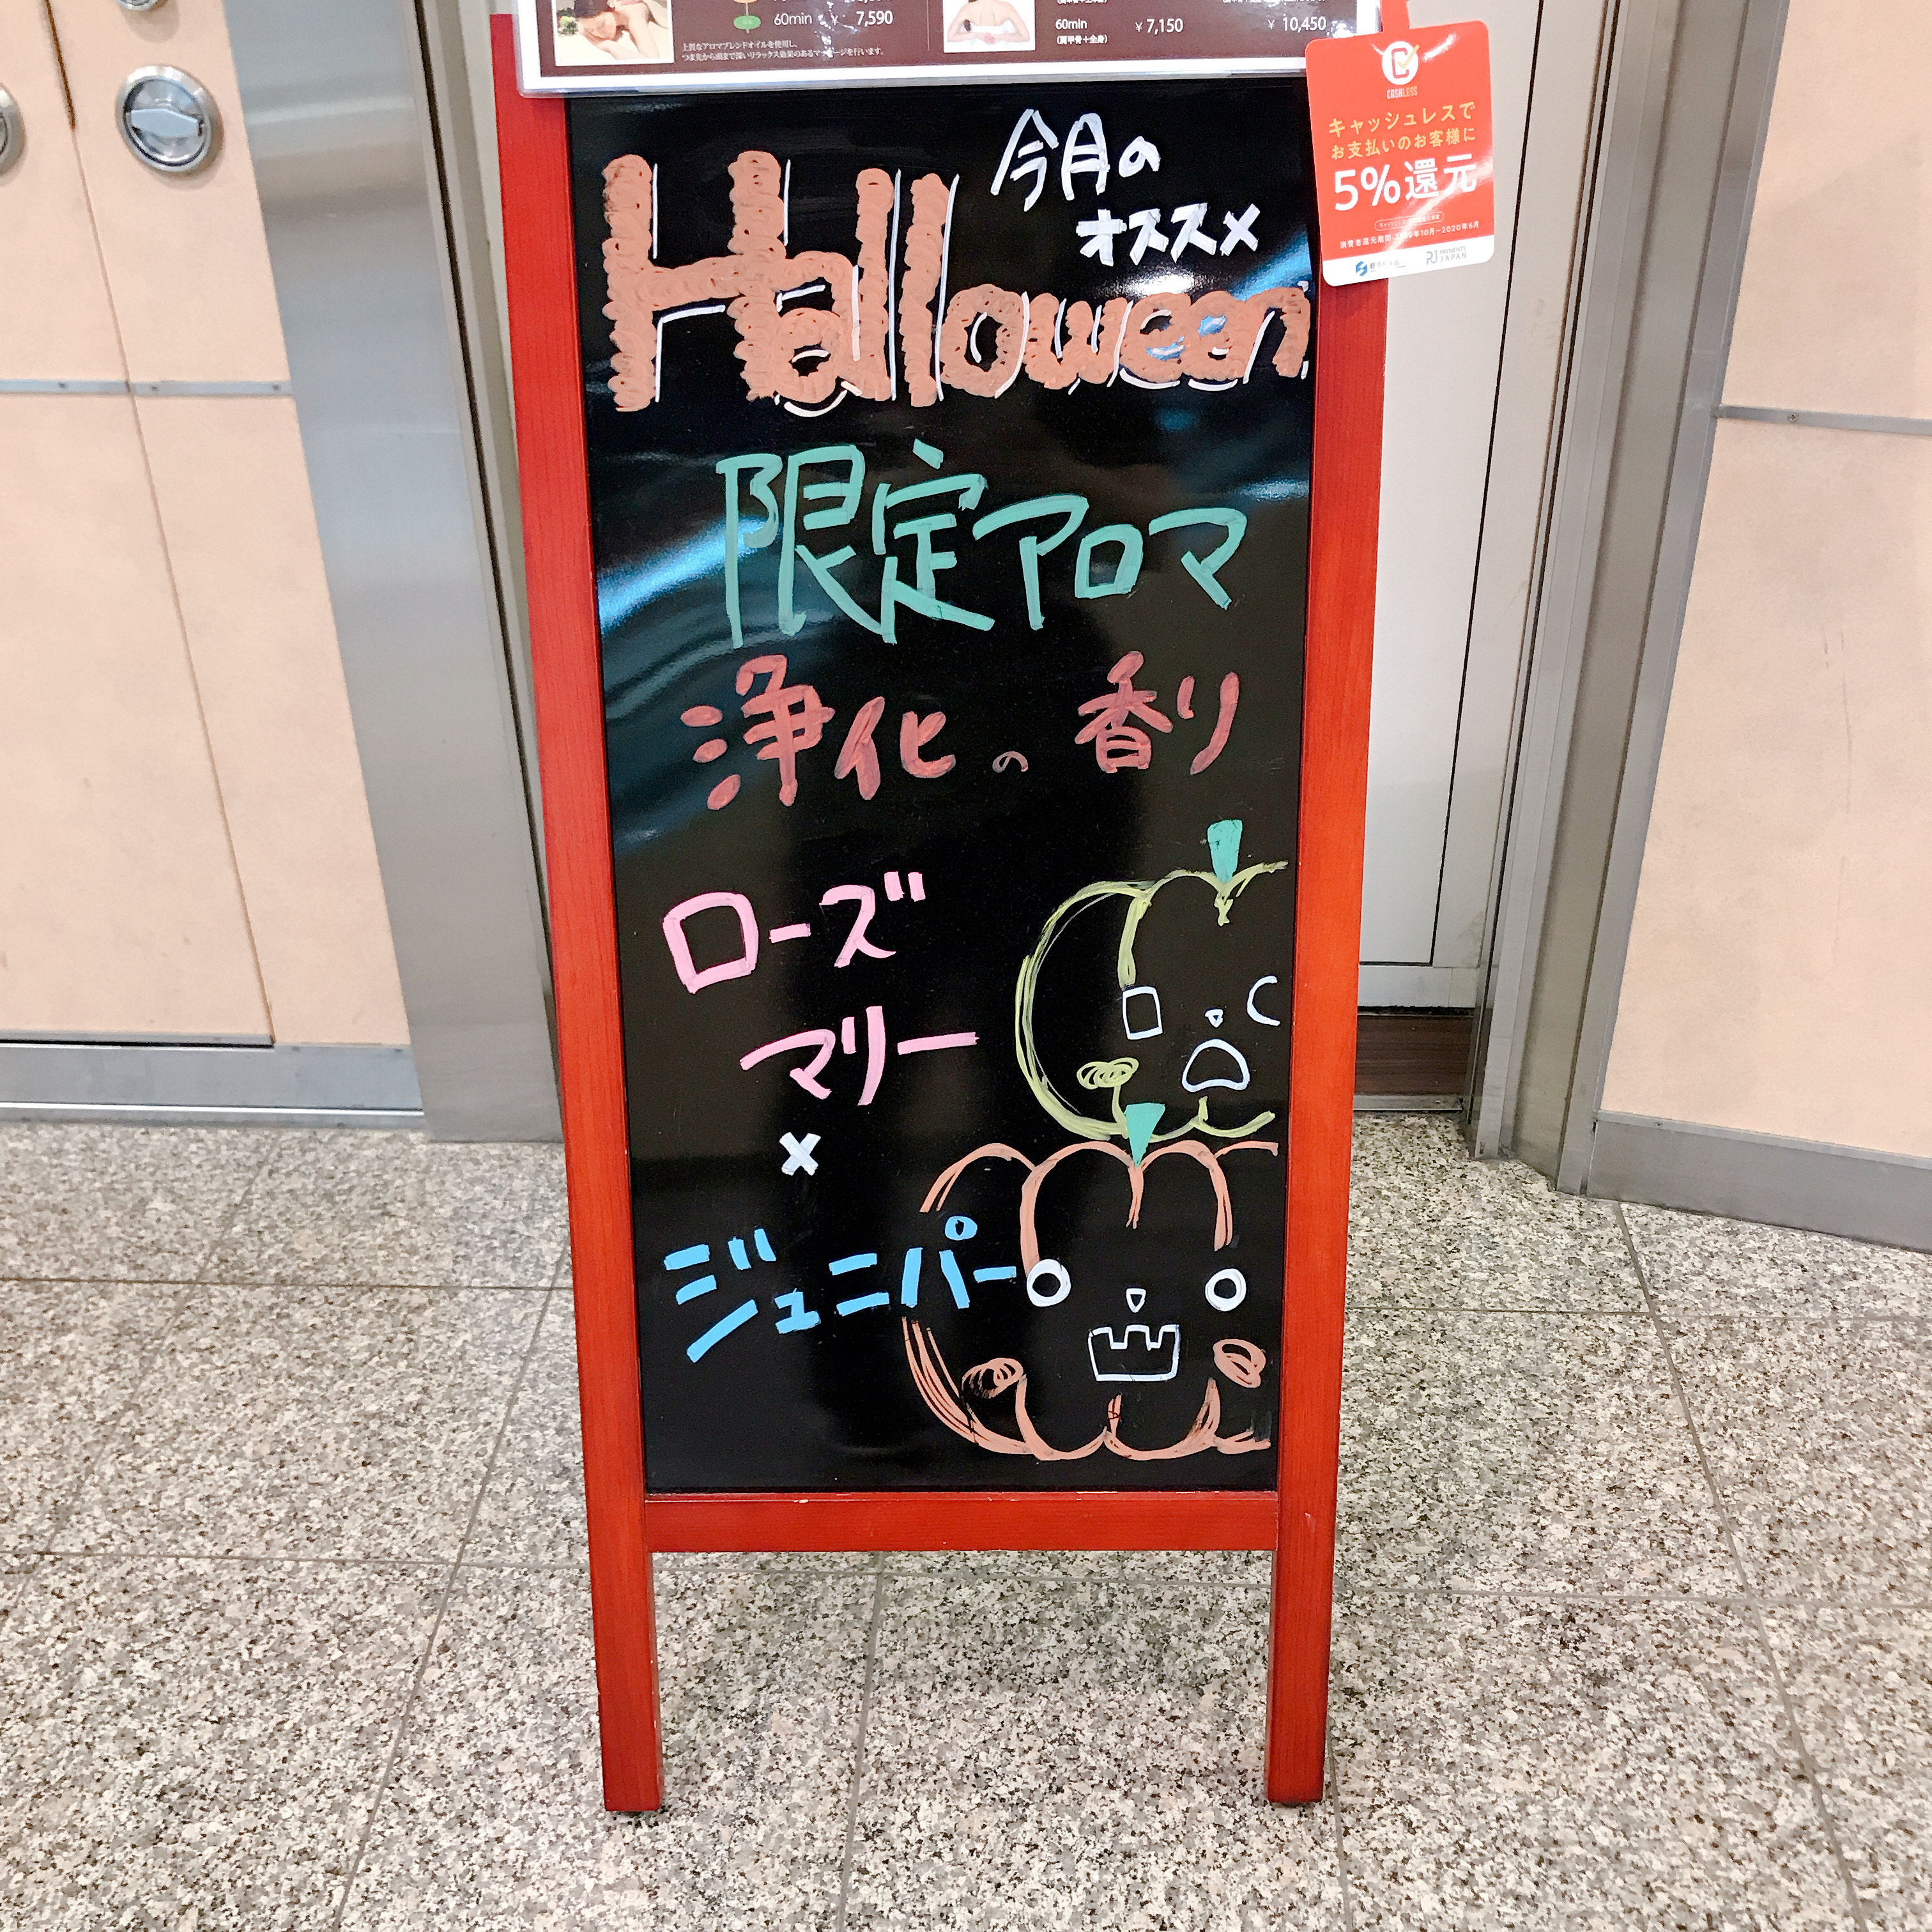 60min ¥ 7,590
上質なアロマブレンドオイルを使用し、
つま先から頭まで深いリラックス効果のあるマッサージを行います。
60min ¥ 7,150 ¥ 10,450
(肩甲骨+全身)
CASHLESS
キャッシュレスで
お支払いのお客様に
5%還元
消費者還元期間 2019年10月〜2020年6月
PAYMENTS JAPAN
今月の
オススメ
Halloween
限定アロマ
浄化の香り
ローズ
マリー
×
ジュニパー